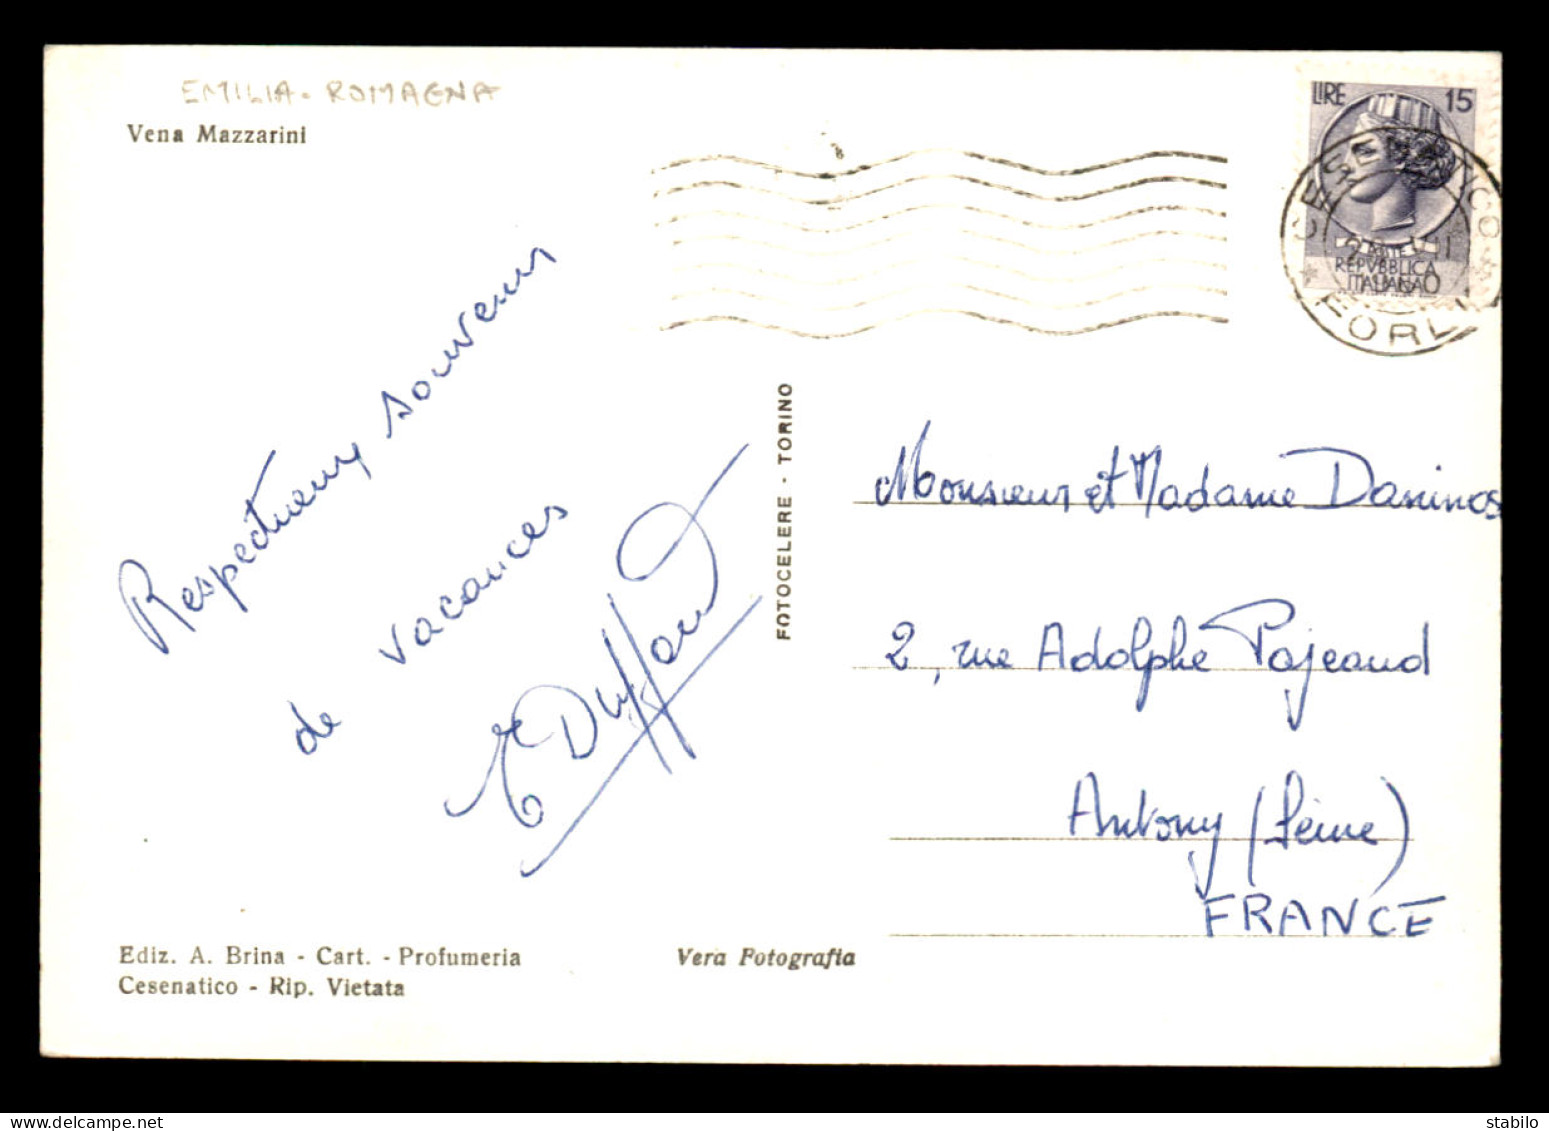 EMILIA-ROMAGNA
Vena Mazzarini
LIRE 15
CESENATICO
REPVBBLICA
ITALIANA
FORLI
Respectueux souvenir
de vacances
E Duffaud
FOTOCELERE - TORINO
Monsieur et Madame Daninos
2, rue Adolphe Pajeaud
Antony (Seine)
FRANCE
Ediz. A. Brina - Cart. - Profumeria
Cesenatico - Rip. Vietata
Vera Fotografia
delcampe.net